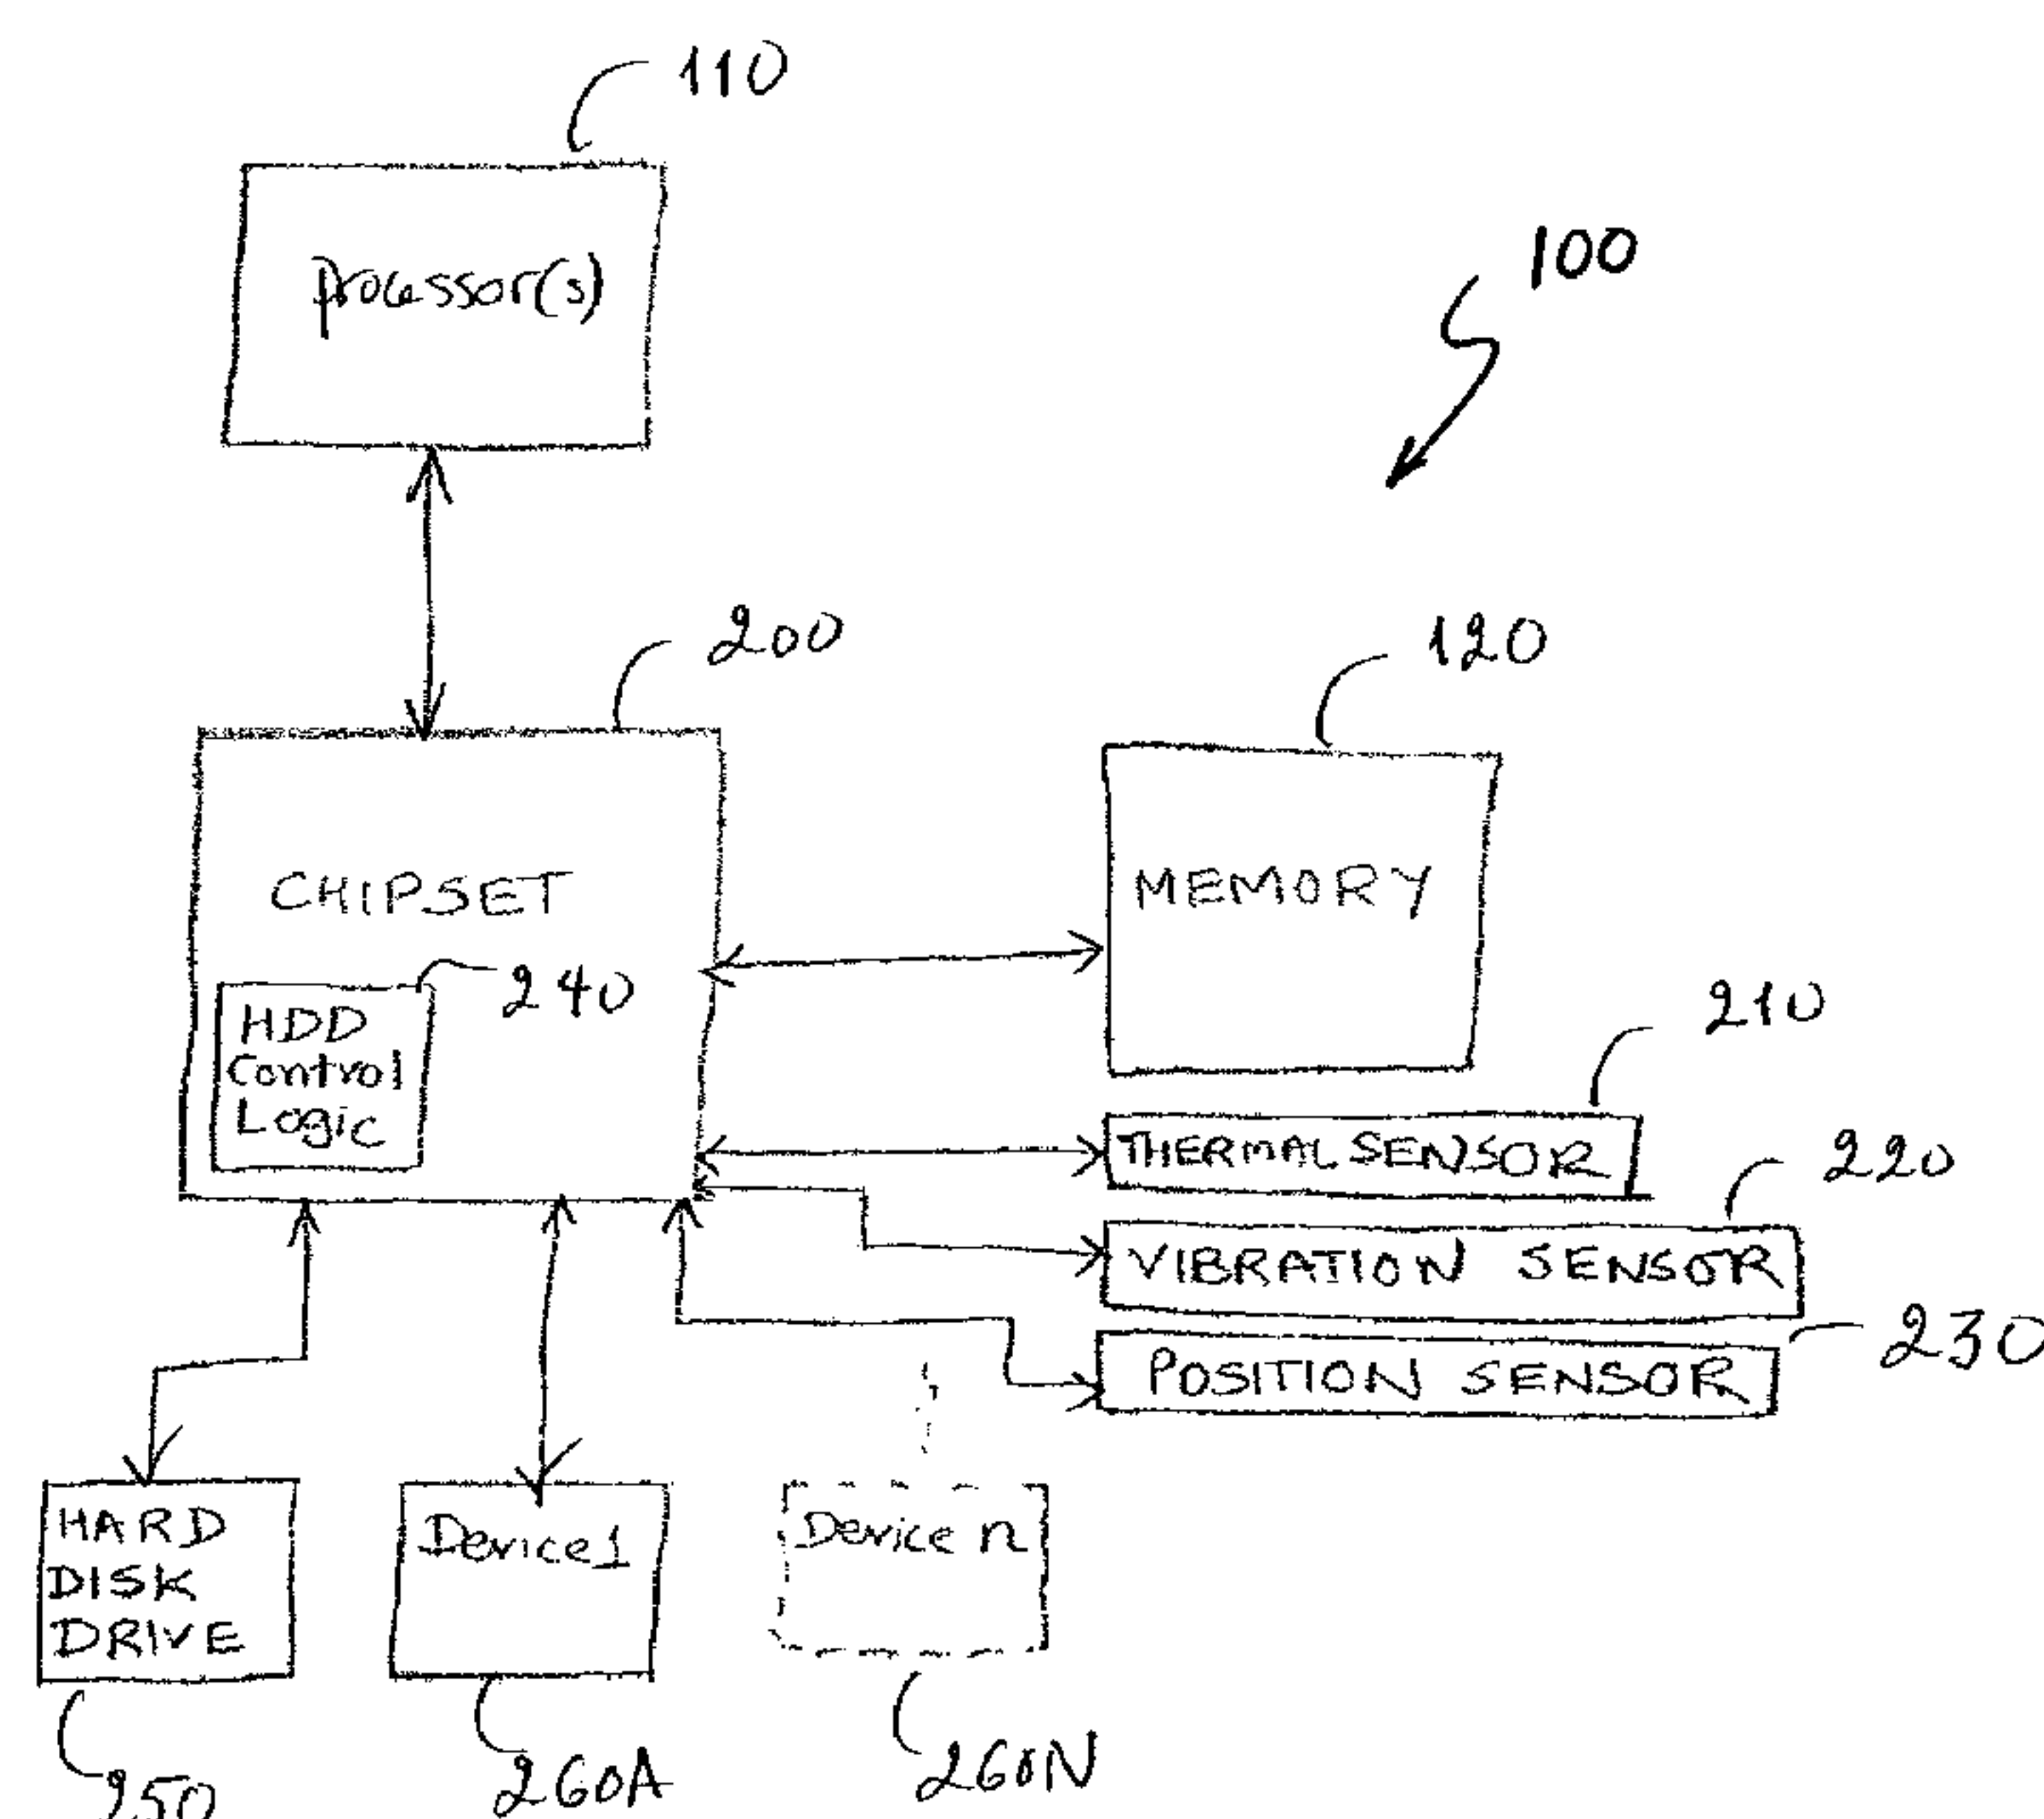 110
processor(s)
100
200
120
CHIPSET
MEMORY
240
HDD
Control
Logic
210
THERMAL SENSOR
220
VIBRATION SENSOR
230
POSITION SENSOR
HARD
DISK
DRIVE
Device1
Device n
250
260A
260N